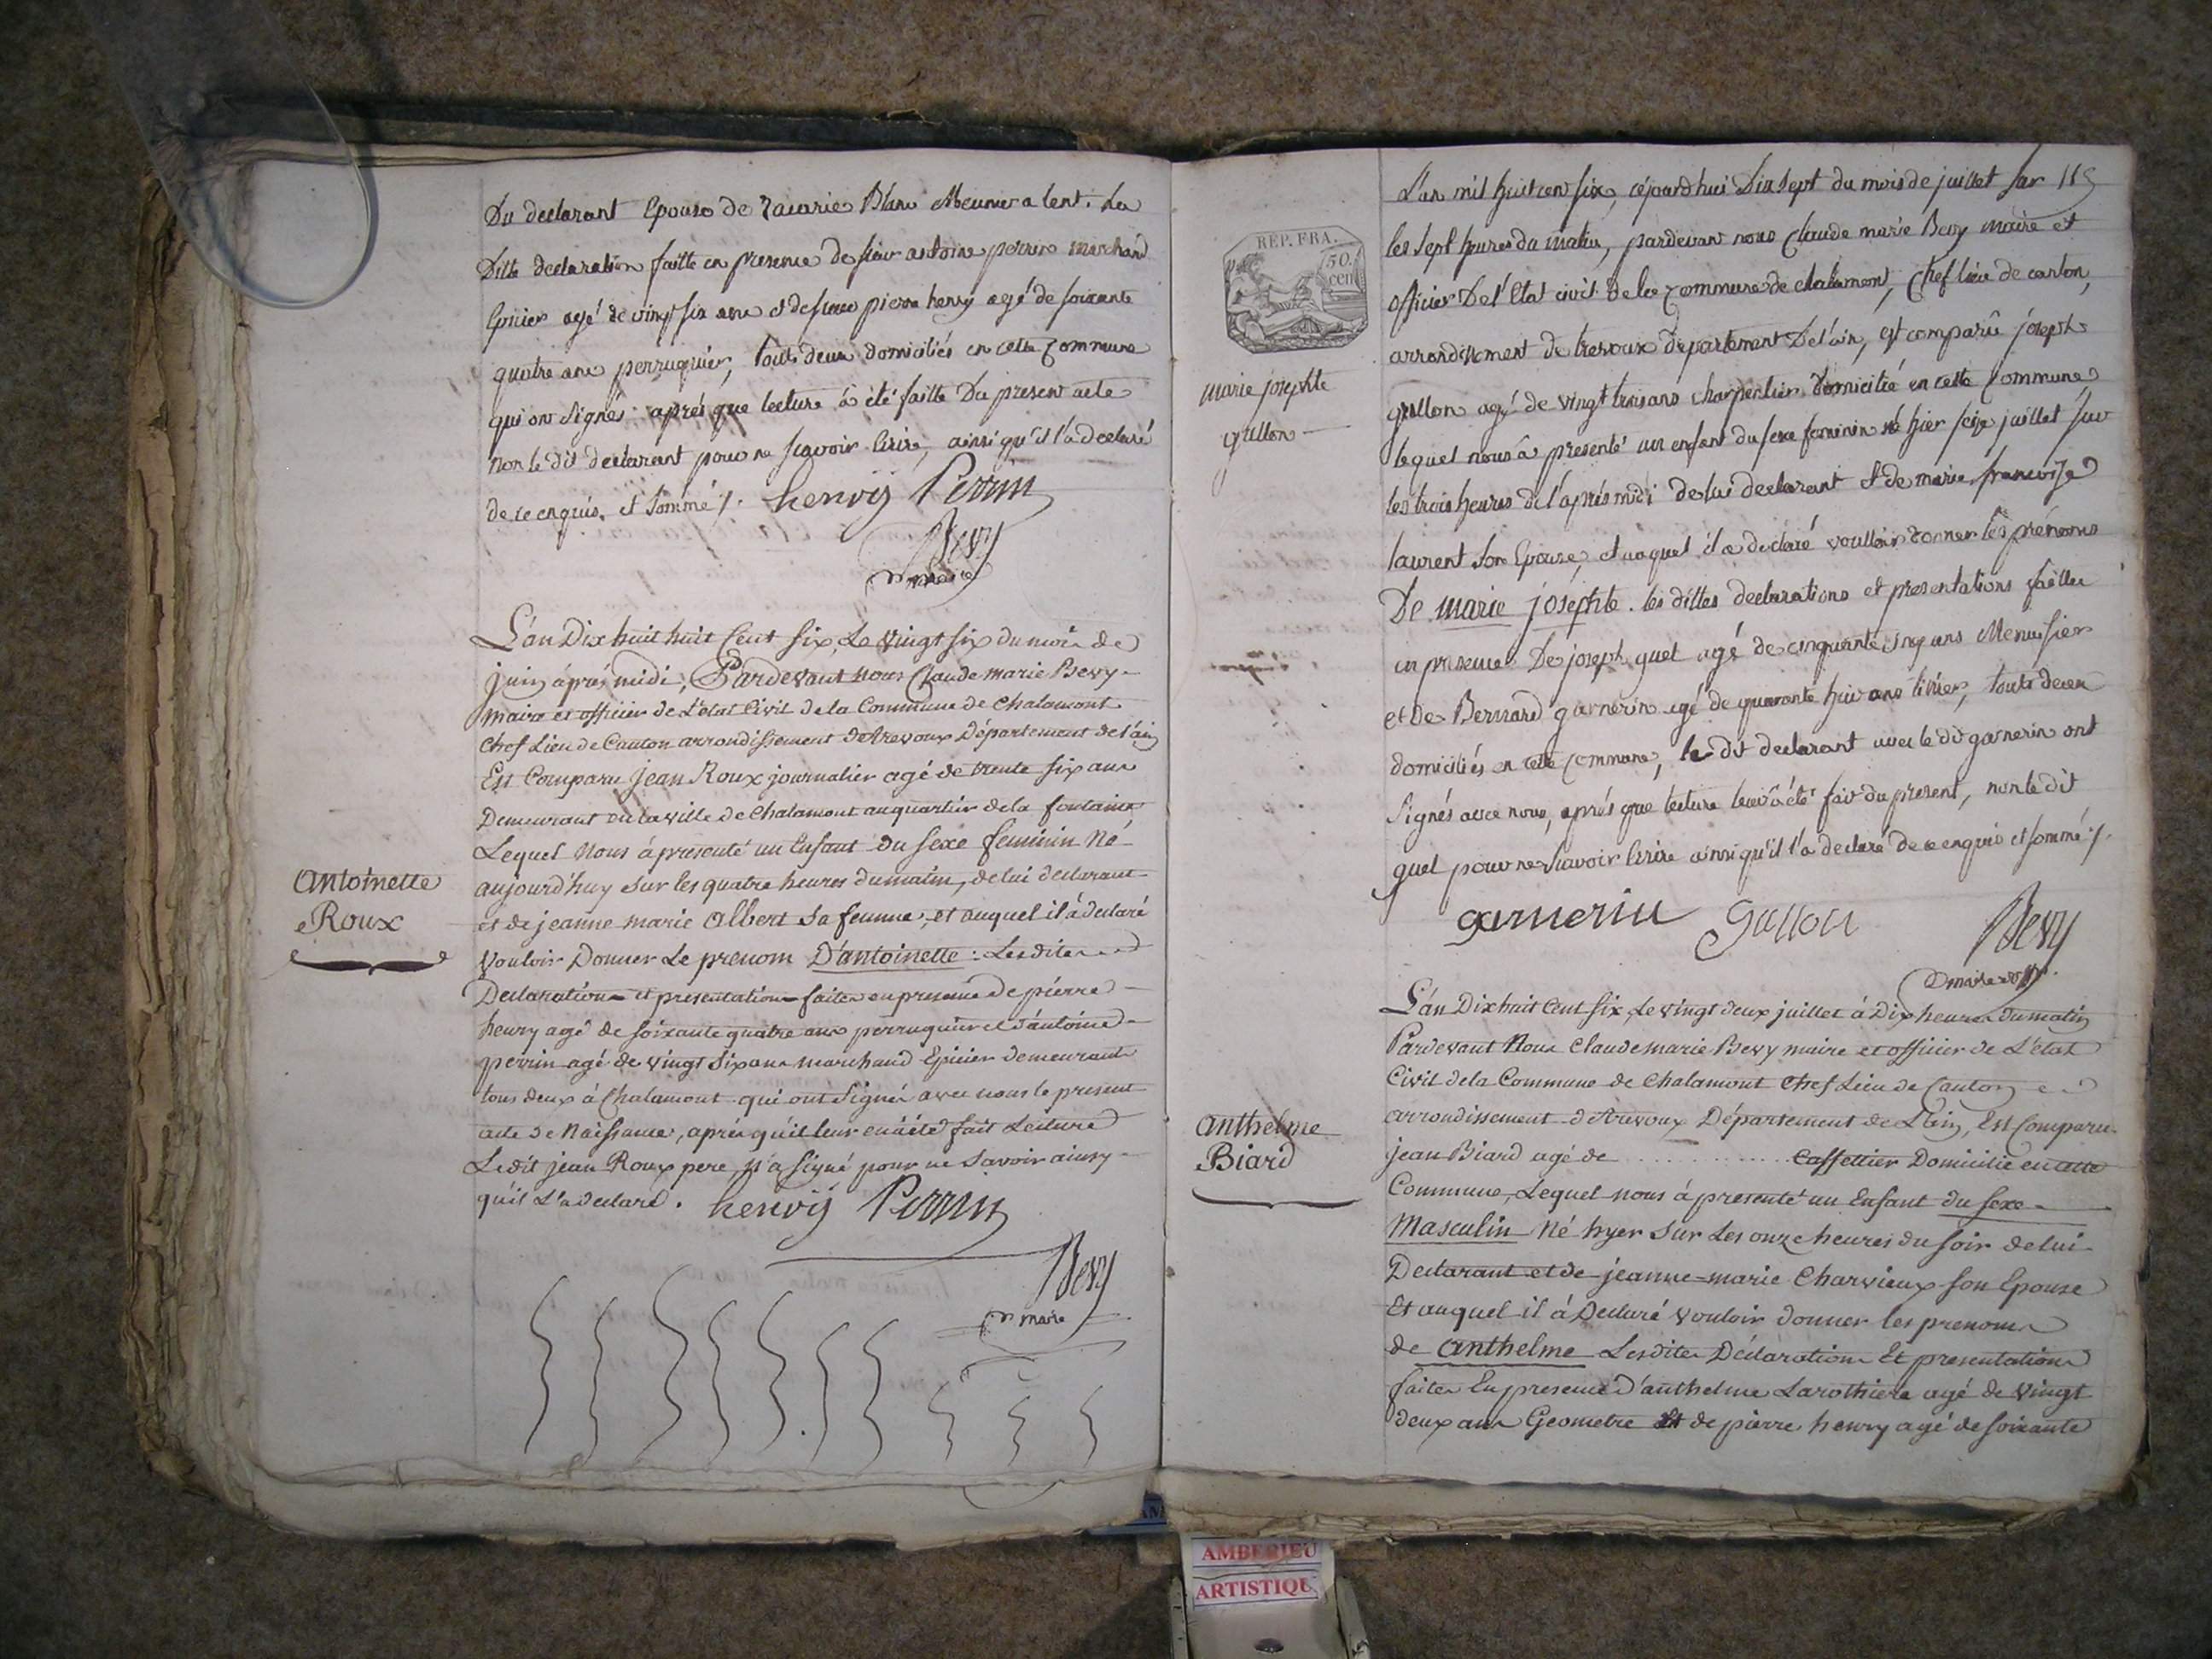 Du declarant Epouse de Zacarie Blanc Meunier a lent. La
Ditte declaration faitte en presence de sieur antoine perrin marchand
Epicier agé de vingt six ans et de sieur pierre henry agé de soixante
quatre ans perruquier, touts deux domiciliés en cette Commune
qui ont signés après que lecture à été faitte Du present acte
non le dit declarant pour ne scavoir Ecrire, ainsi qu'il l'a declaré
de ce enquis, et sommé /. henrÿ Perrin
Bevy
maire
L'an Dix huit huit Cent Six, Le Vingt six du mois de
juin àprés midi, Pardevant nous Claude marie Bevy
maire et officier de L'etat Civil de la Commune de Chalamont
Chef Lieu de Canton arrondissement de trevoux Département de l'ain
Est Comparu jean Roux journalier agé de trente six ans
Demeurant en la ville de Chalamont au quartier de la fontaine
Lequel Nous á presenté un Enfant du Sexe feminin Né
aujourd'huy sur les quatre heures du matin, de lui declarant
et de jeanne marie Albert Sa femme, et auquel il à declaré
Vouloir Donner Le prenom D'antoinette : Lesdites
Declarations et presentations faites en presence de pierre
henry agé de soixante quatre ans perruquier et d'antoine
perrin agé de Vingt Six ans marchand Epicier demeurants
tous deux à Chalamont qui ont Signér avec nous le present
acte de Naissance, aprés qu'il leur en à été fait Lecture
Le dit jean Roux pere n'a signé pour ne Savoir ainsy
qu'il L'a declaré. henrÿ Perrin
Bevy
maire
Antoinette
Roux
115
L'an mil huit cent six, cejourd'hui Dix sept du mois de juillet sur
les sept heures du matin, pardevant nous Claude marie Bevy maire et
officier De l'Etat civil de la Commune de chalamont, Chef lieu de canton,
arrondissement de trevoux departement De l'ain, est comparû joseph
gullon agé de vingt trois ans charpentier domicilié en cette Commune
lequel nous à presenté un enfant du sexe feminin né hier seize juillet sur
les trois heures de l'aprés midi de lui declarant et de marie francoise
laurent son Epouse, et auquel il a declaré voulloir donner les prénoms
De marie josephte. les dittes declarations et presentations faittes
en presence De joseph guel agé de cinquante cinq ans Menuisier
et de Bernard garnerin agé de quarante huit ans, touts deux
domiciliés en cette commune, le dit declarant avec le dit garnerin ont
signés avec nous, aprés que lecture leur à été fait du present, non le dit
guel pour ne scavoir Ecrire ainsi qu'il l'a declaré de ce enquis et sommé /.
garnerin gullon Bevy
maire
REP. FRA.
50.
cen
marie josephte
gullon
L'an Dix huit Cent Six, Le vingt deux juillet à Dix heures du matin
Pardevant Nous Claude marie Bevy maire et officier de L'etat
Civil de la Commune de Chalamont Chef Lieu de Canton
arrondissement de trevoux Département de L'ain, Est Comparu
jean Biard agé de ............ Caffettier Domicilié en cette
Commune, Lequel nous à presenté un Enfant du Sexe
Masculin Né hyer sur les onze heures du soir de lui
Declarant et de jeanne marie Charvieux son Epouse
Et auquel il à Declaré vouloir donner les prenoms
de Anthelme Lesdites Déclarations Et presentations
faites En presence d'anthelme Larothiere agé de vingt
deux ans Geometre Et de pierre henry agé de soixante
Anthelme
Biard
AMBERIEU
ARTISTIQU